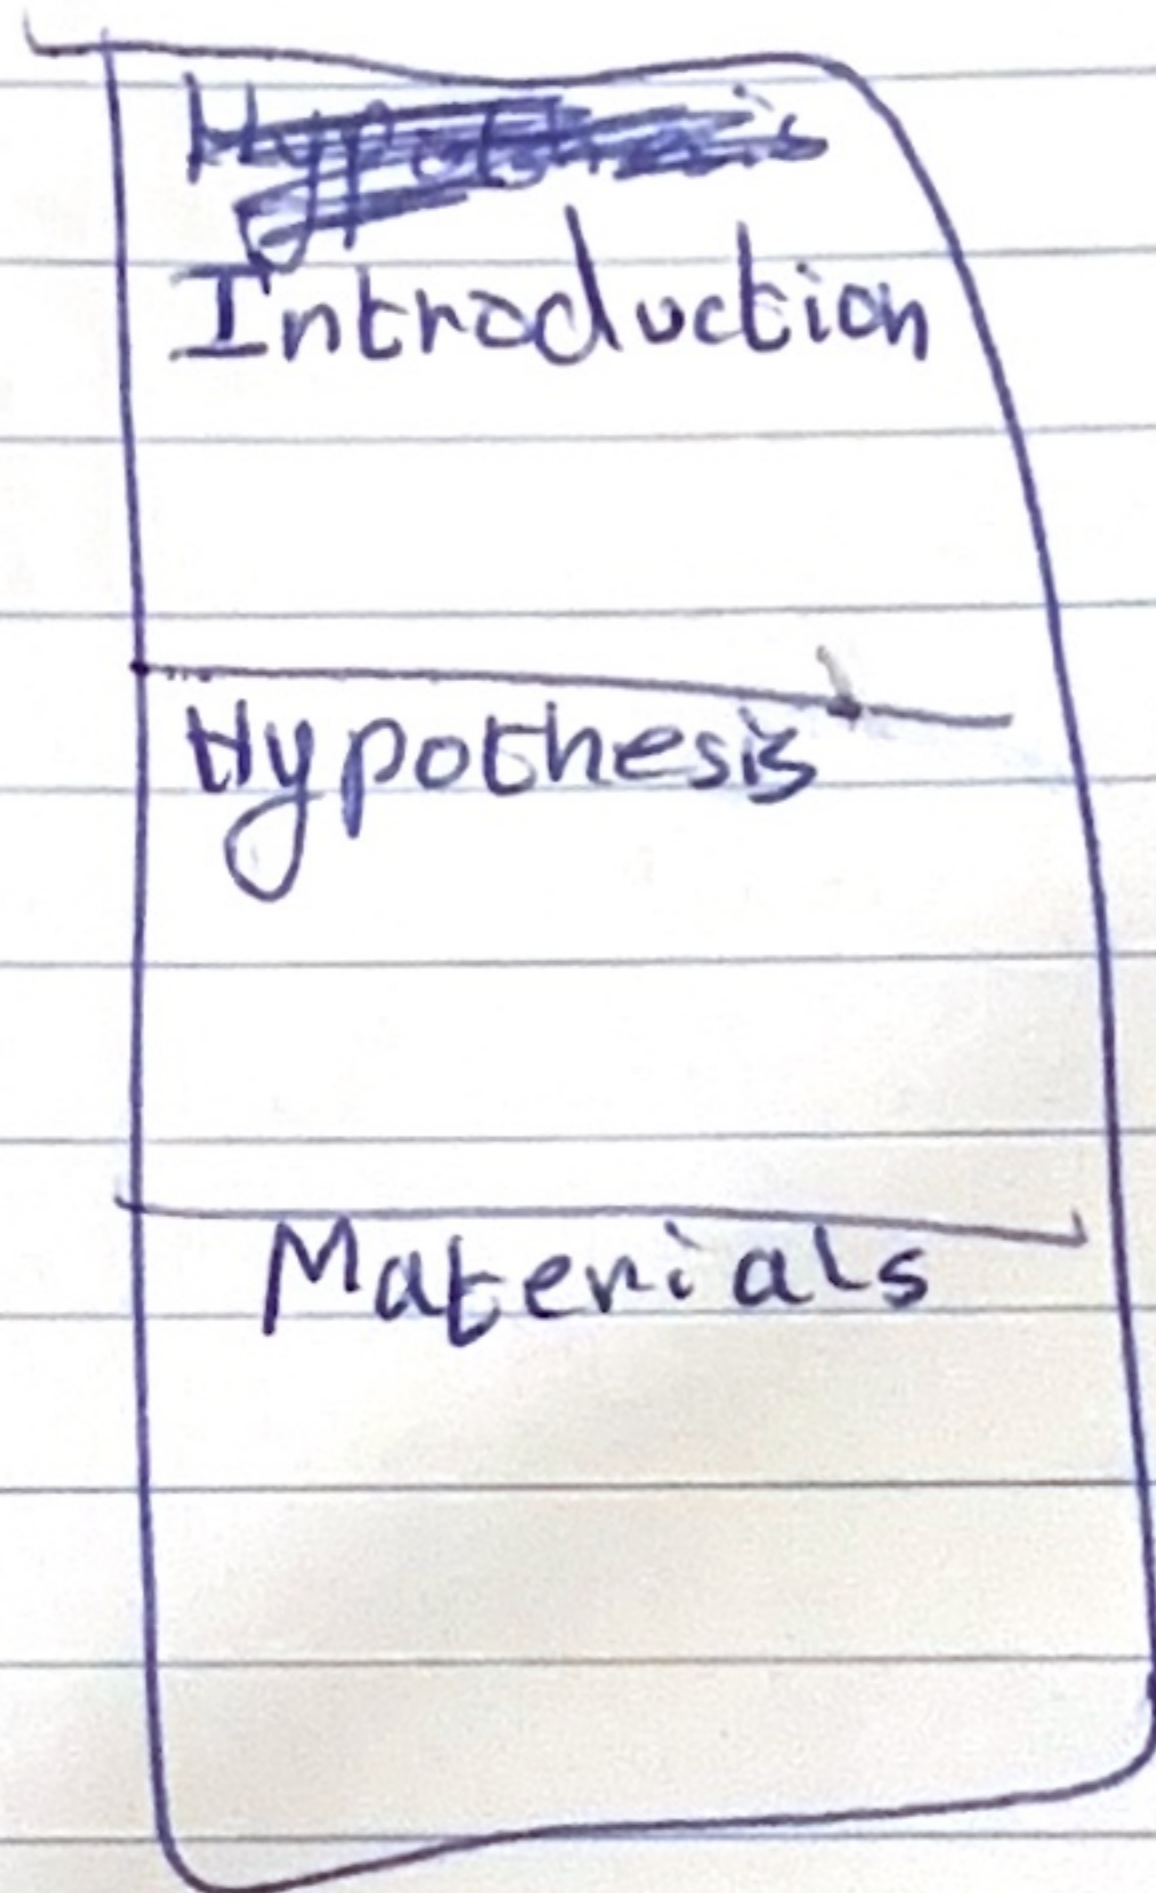 Introduction
Hypothesis
Materials